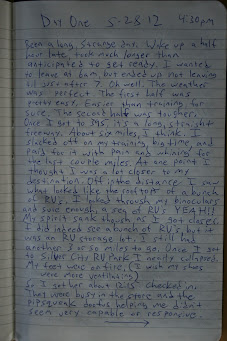 Day One 5-28-12 4:30pm
Been a long, strange day. Woke up a half
hour late, took much longer than
anticipated to get ready. I wanted
to leave at 6am, but ended up not leaving
til just after 7. Oh well. The weather
was perfect. The first half was
pretty easy. Easier than training for
sure. The second half was tougher.
Once I got to it's a long, straight
freeway. About six miles, I think. I
slacked off on my training, big time, and
paid for it with pain and whining for
the last couple miles. At one point I
thought I was a lot closer to my
destination. Off in the distance I saw
what looked like the tops of a bunch
of RV's. I looked through my binoculars
and sure enough, a sea of RV's. YEAH!
My spirit sank though as I got closer.
I did indeed see a bunch of RV's, but it
was an RV storage lot. I still had
another 3 or so miles to go. Once I got
to Silver City RV Park I nearly collapsed.
My feet were on fire. (I wish my shoes
were more ventilating)
So I got here about 12:15. Checked in.
They were busy in the store and the
pipsqueak helping me didn't
seem very capable or responsive.